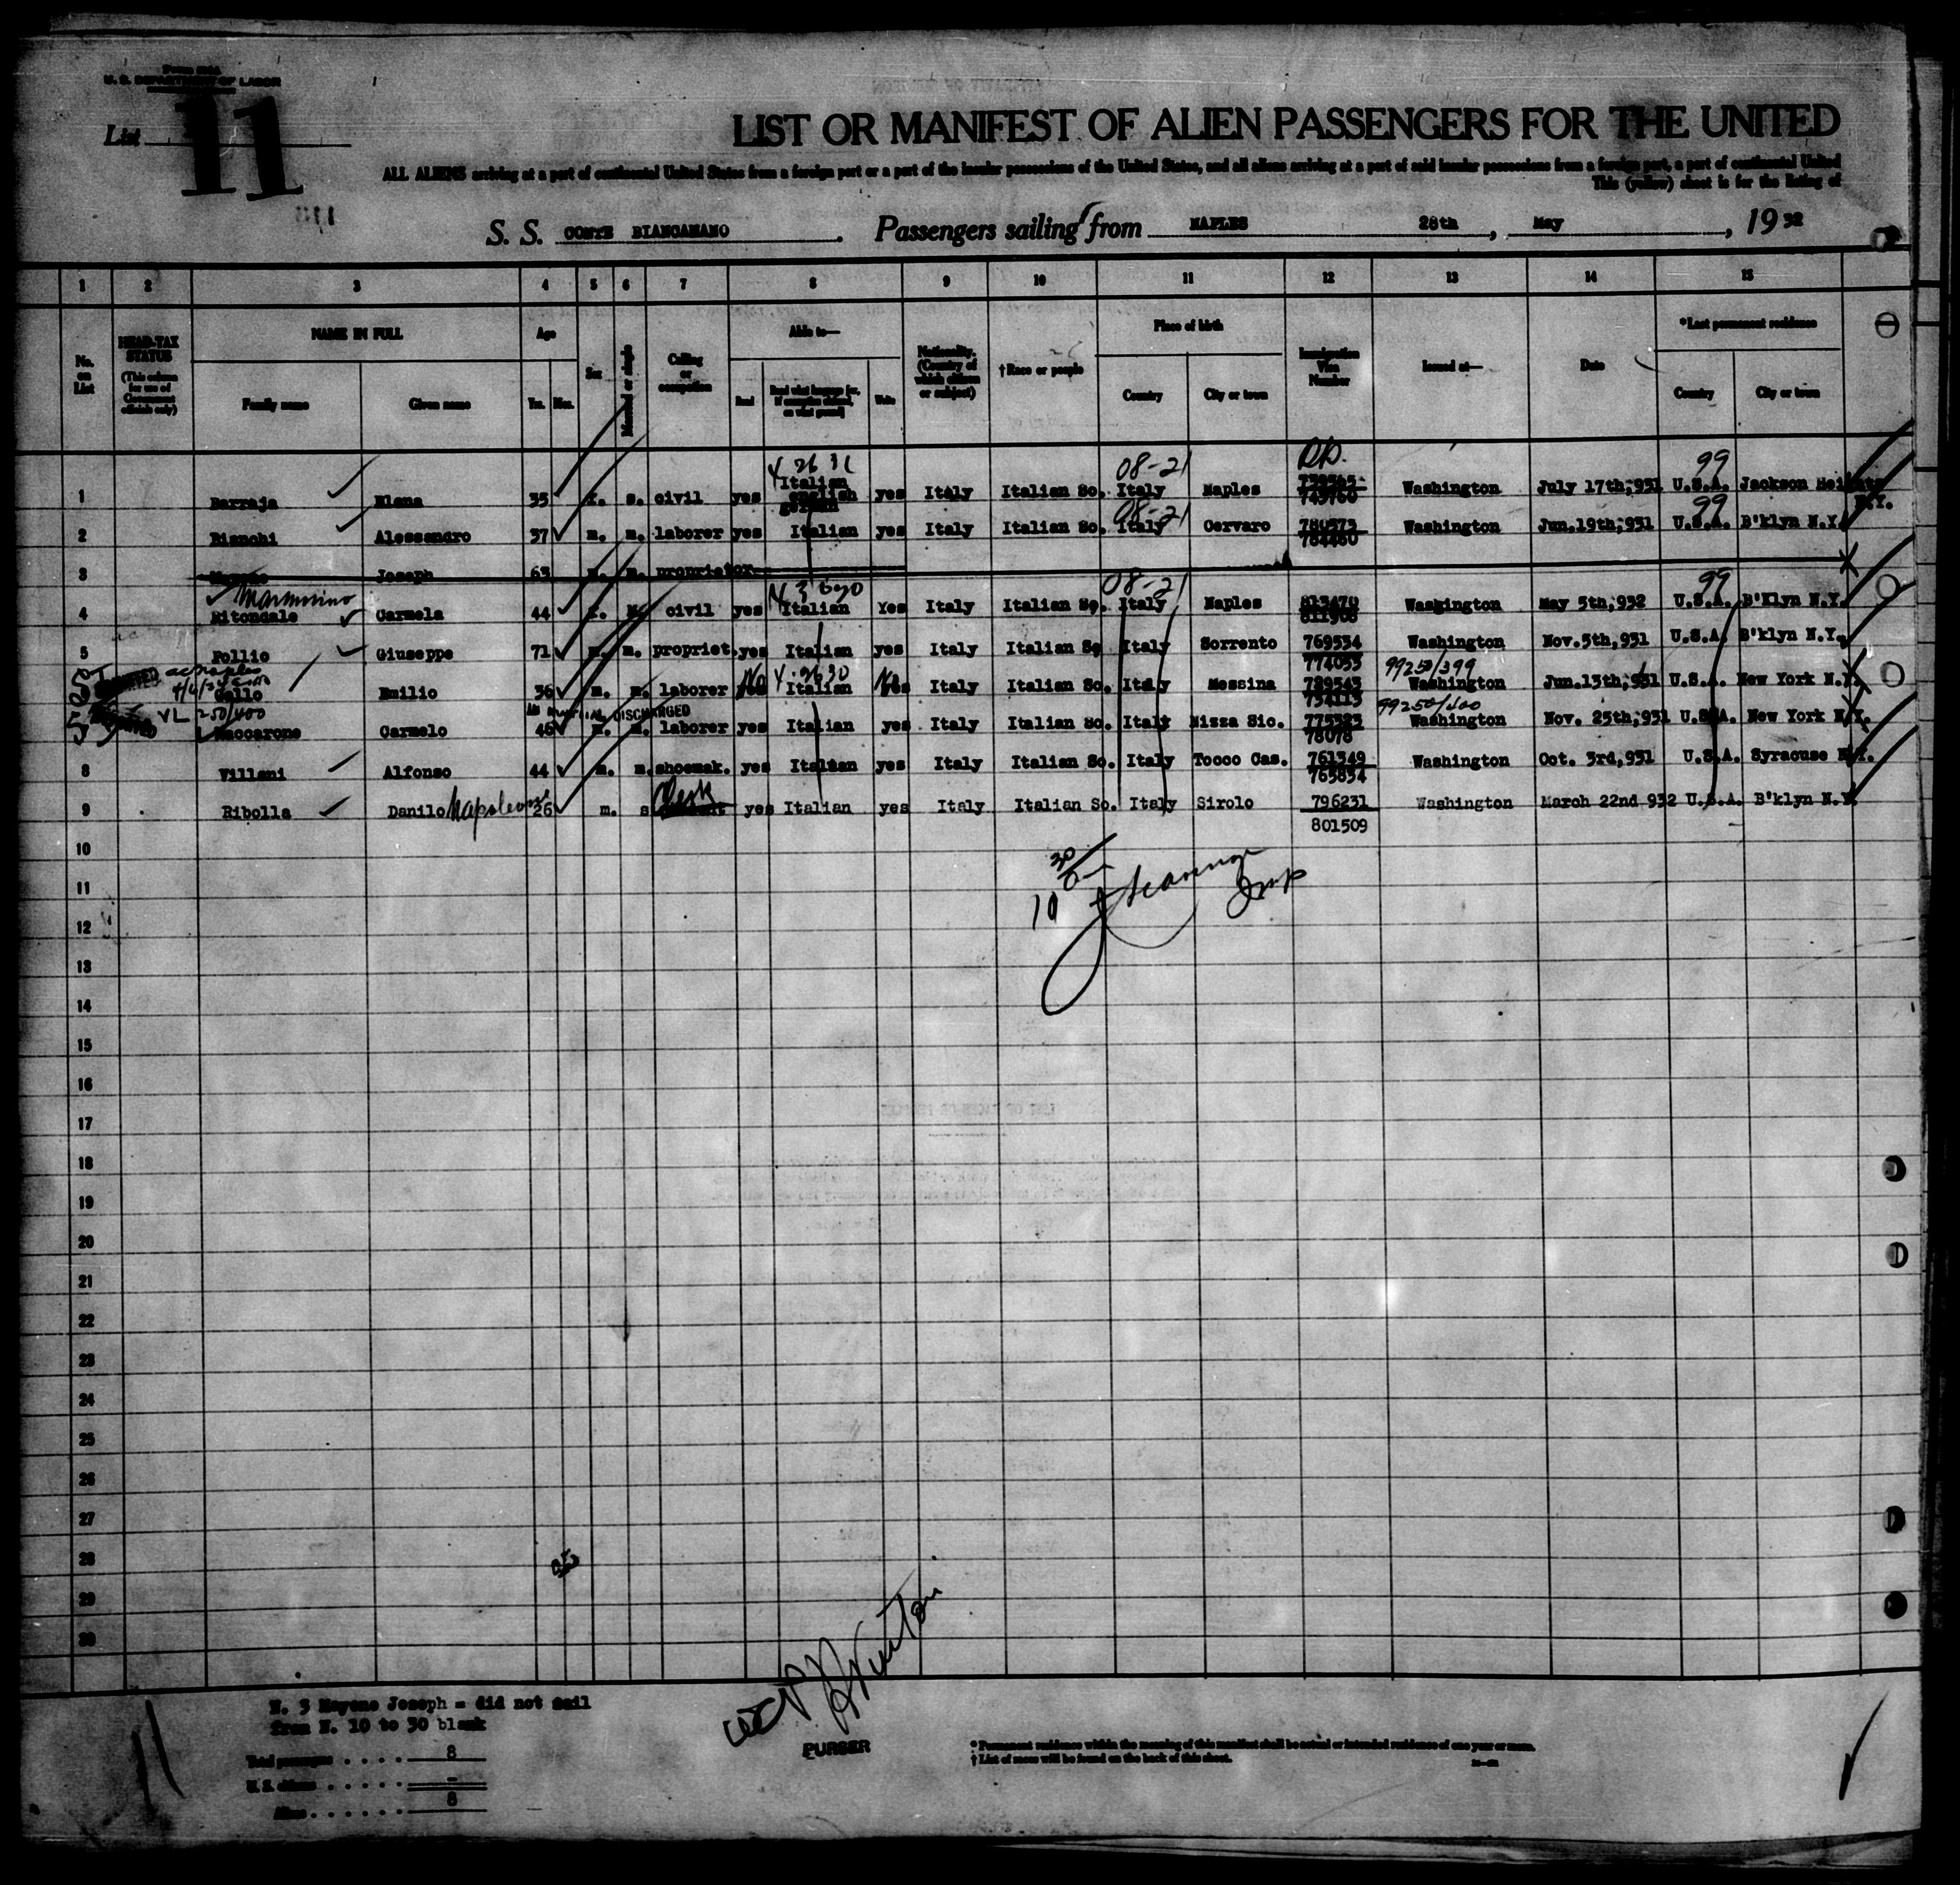 U. S. DEPARTMENT OF LABOR
List 11
LIST OR MANIFEST OF ALIEN PASSENGERS FOR THE UNITED
ALL ALIENS arriving at a port of continental United States from a foreign port or a port of the insular possessions of the United States, and all aliens arriving at a port of said insular possessions from a foreign port, a port of continental United
This (yellow) sheet is for the listing of
S. S. CONTE BIANCAMANO. Passengers sailing from NAPLES 28th, May, 1932
1 2 3 4 5 6 7 8 9 10 11 12 13 14 15
No. on List
HEAD-TAX STATUS (This column for use of Government officials only)
NAME IN FULL
Family name Given name
Age
Yrs. Mos.
Sex
Married or single
Calling or occupation
Able to—
Read Read what language [or, if exemption claimed, on what ground] Write
Nationality. (Country of which citizen or subject)
†Race or people
Place of birth
Country City or town
Immigration Visa Number
Issued at—
Date
*Last permanent residence
Country City or town
08-21 99
1 Barraja Elena 35 f. s. civil yes Italian english german yes Italy Italian So. Italy Naples 743760 Washington July 17th;931 U.S.A. Jackson Heights N.Y.
08-21 99
2 Bianchi Alessandro 37 m. m. laborer yes Italian yes Italy Italian So. Italy Cervaro 780373 784460 Washington Jun.19th;931 U.S.A. B'klyn N.Y.
3 Joseph 63 m. m. proprietor
08-21 99
4 Ritondale Carmela 44 f. civil yes Italian Yes Italy Italian So. Italy Naples 813470 811908 Washington May 5th,932 U.S.A. B'klyn N.Y.
5 Pollio Giuseppe 71 m. m. propriet. yes Italian yes Italy Italian So Italy Sorrento 769534 774053 Washington Nov.5th,931 U.S.A. B'klyn N.Y.
99250/399
Emilio 36 m. m. laborer No yes Italian No yes Italy Italian So. Italy Messina 729543 734113 Washington Jun.13th;931 U.S.A. New York N.Y.
VL 250/400 DISCHARGED 99250/400
Maccarone Carmelo 46 m. m. laborer yes Italian yes Italy Italian So. Italy Nizza Sic. 775323 Washington Nov. 25th;931 U.S.A. New York N.Y.
8 Villani Alfonso 44 m. m. shoemak. yes Italian yes Italy Italian So. Italy Tocco Cas. 761349 765834 Washington Oct. 3rd,931 U.S.A. Syracuse N.Y.
9 Ribolla Danilo Napoleone 26 m. s Clerk yes Italian yes Italy Italian So. Italy Sirolo 796231 801509 Washington March 22nd 932 U.S.A. B'klyn N.Y.
10
11
12
13
14
15
16
17
18
19
20
21
22
23
24
25
26
27
28
29
30
N. 3 Mayone Joseph = did not sail
from N. 10 to 30 blank
Total passengers . . . . 8
U. S. citizens . . . . . –
Aliens . . . . . . 8
PURSER
* Permanent residence within the meaning of this manifest shall be actual or intended residence of one year or more.
† List of races will be found on the back of this sheet.